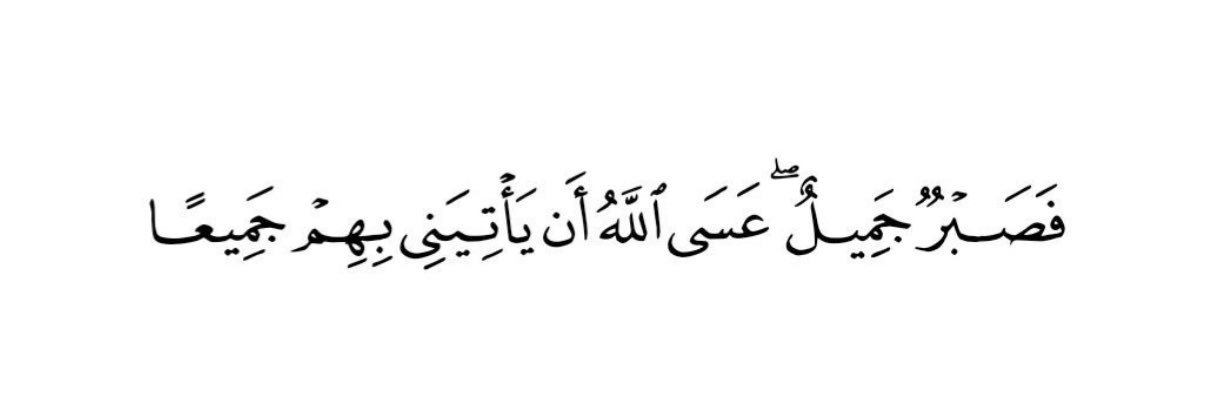 فَصَبۡرٞ جَمِيلٌۖ عَسَى ٱللَّهُ أَن يَأۡتِيَنِي بِهِمۡ جَمِيعًا